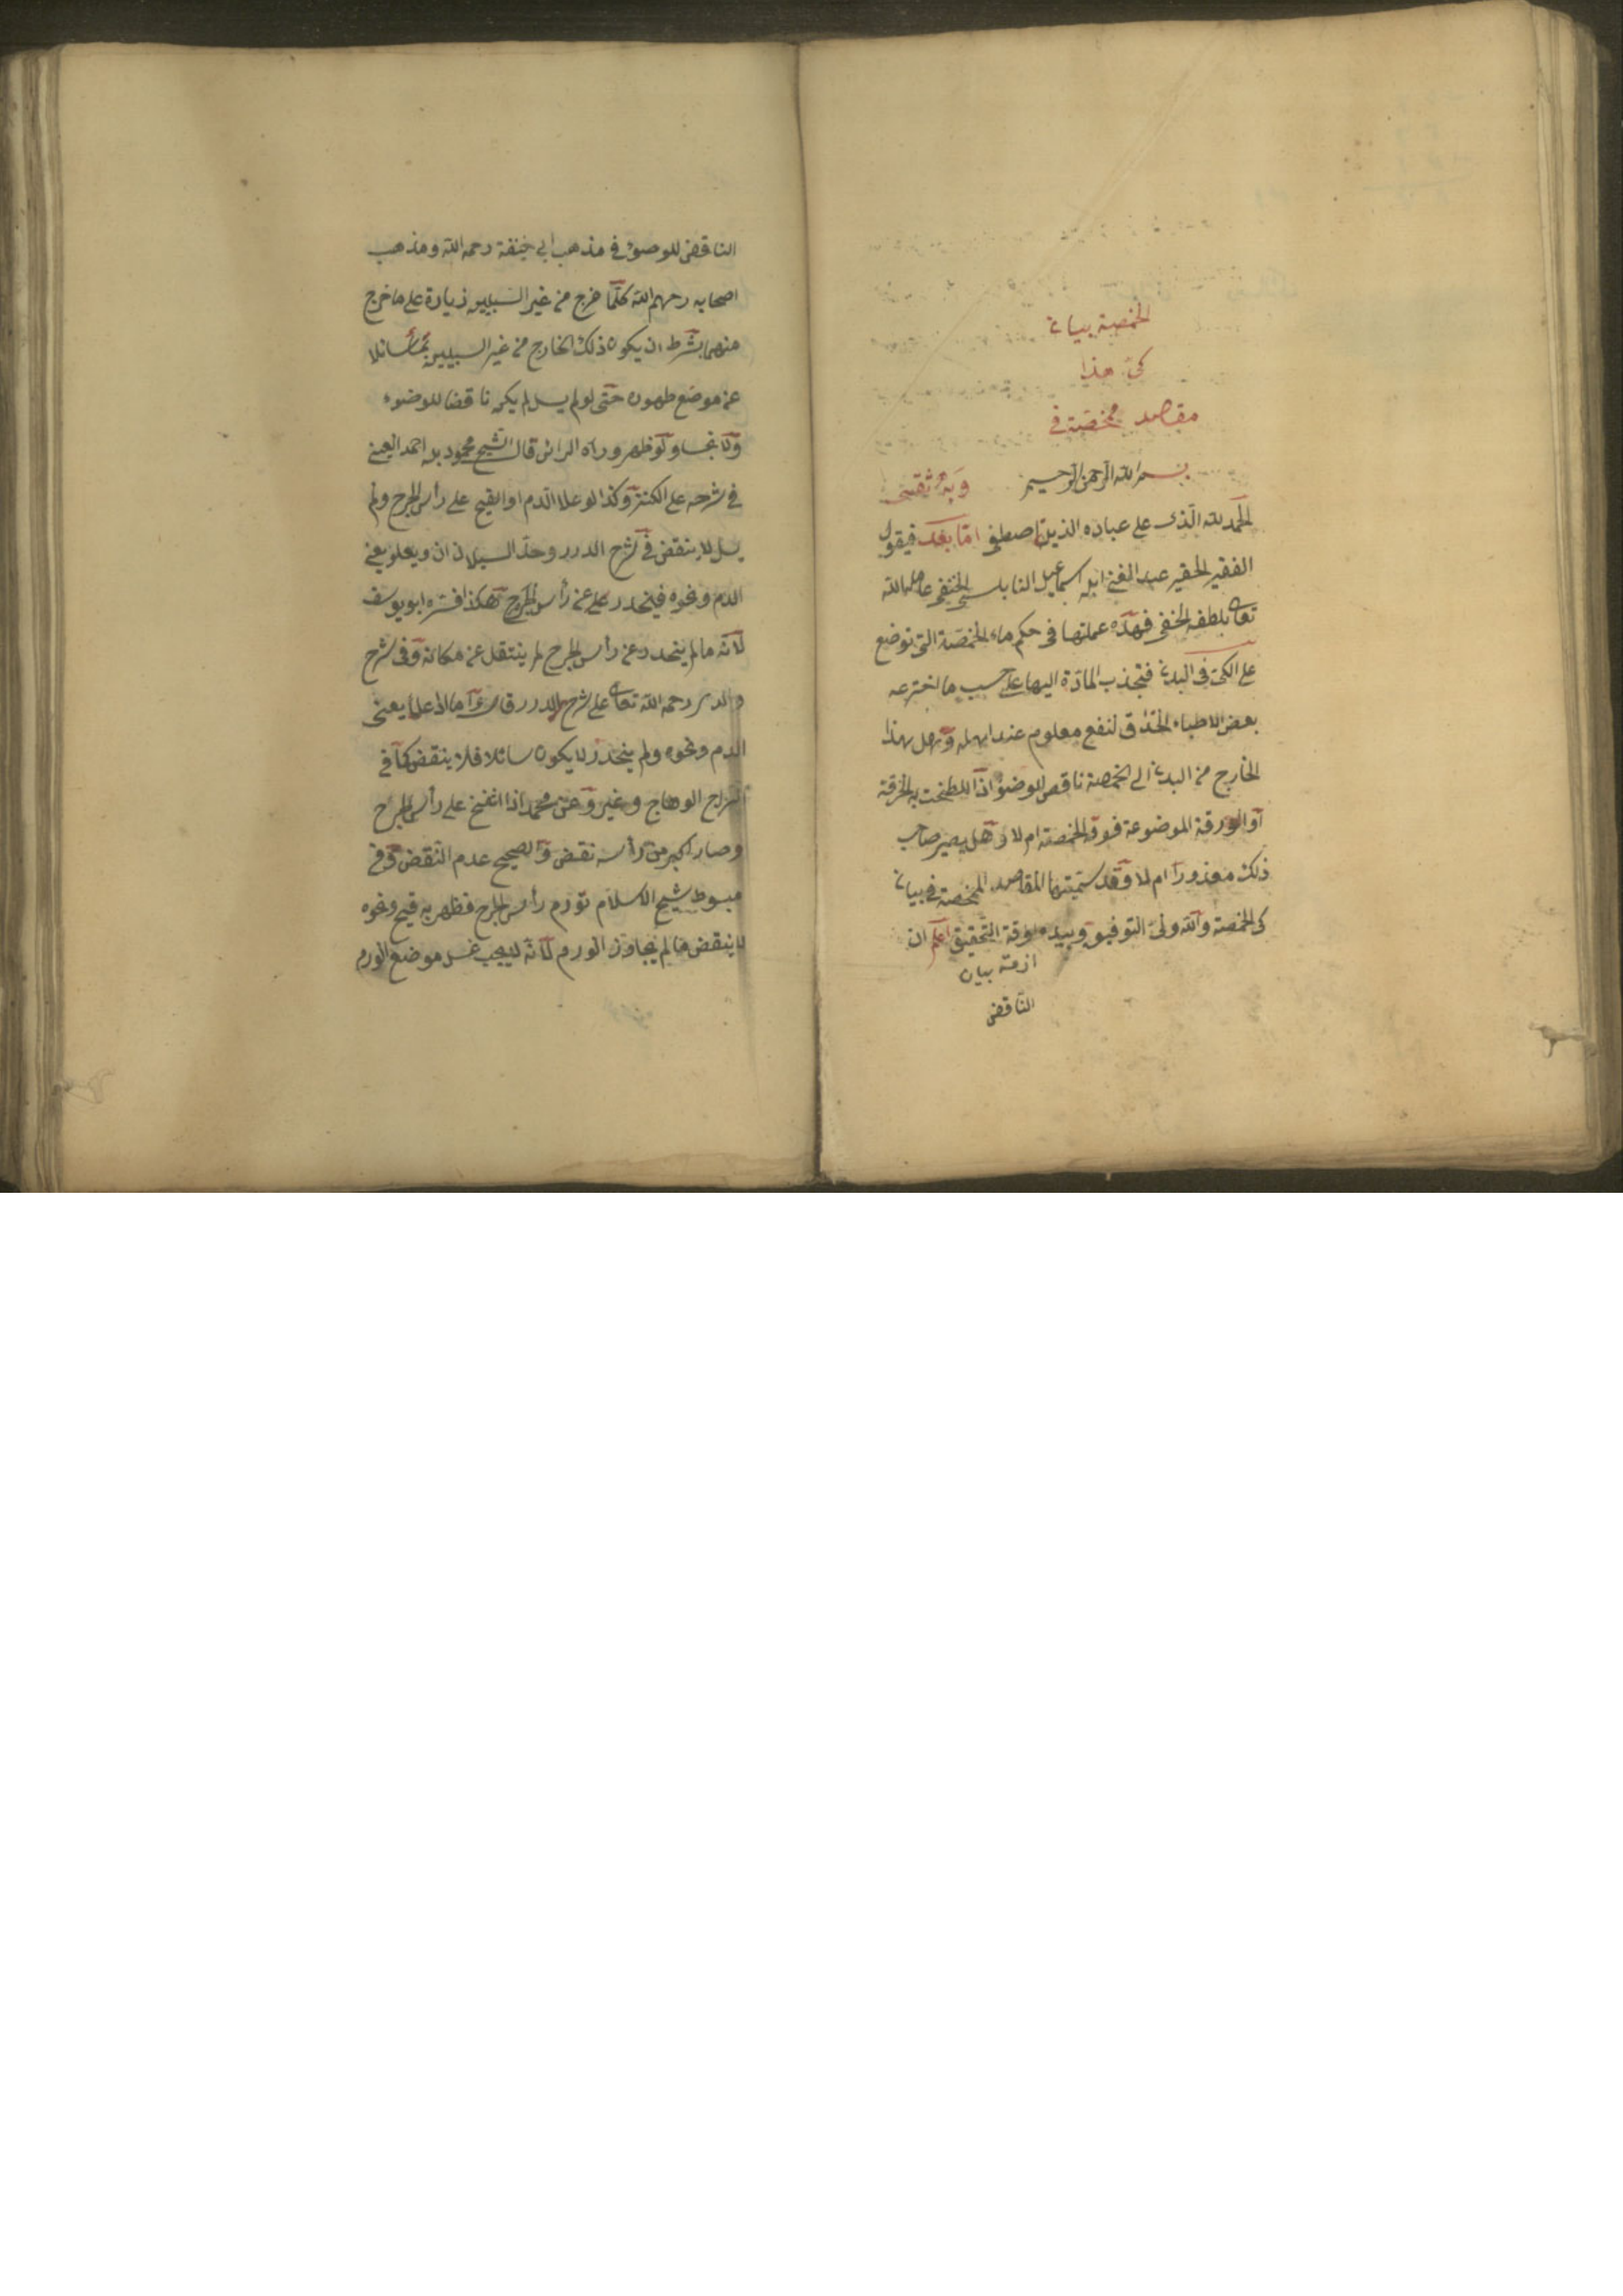 الحمصة بيان
كي هذا
مقاصد ممحصة في
بسم الله الرحمن الرحيم وبه ثقتي
الحمد لله الذى على عباده الذين اصطفى امّا بعد فيقول
الفقير الحقير عبد الغنى ابن اسماعيل النابلسى الحنفى عامله الله
تعالى بلطفه الخفى فهذه عملتها فى حكم ماء الحمصة التى توضع
على الكى فى البدن فتجذب المادّة اليها على حسب ما اخترعه
بعض الاطباء الحذّاق لنفع معلوم عند اهله وهل هذا
الخارج من البدن الى الحمصة ناقص للوضوء اذا اللطخت به الخرقة
او الورقة الموضوعة فوق الحمصة ام لا وهل يصير صاحب
ذلك معذوراً ام لا وقد سمّيتها المقاصد الممحصة فى بيان
كى الحمصة والله ولىّ التوفيق وبيده ازمة التحقيق اعلم ان
ازمة بيان
الناقض
الناقض للوضوء فى مذهب ابي حنيفة رحمه الله ومذهب
اصحابه رحمهم الله كلّما خرج من غير السبيلين زيادة على ما خرج
منهما بشرط ان يكون ذلك الخارج من غير السبيلين سائلا
عن موضع طهون حتى لو لم يسل لم يكن ناقضا للوضوء
ولو ظهر وراه الرائى قال الشيخ محمود بن احمد العينى
فى شرحه على الكنز وكذا لو علا الدم او القيح على رأس الجرح ولم
يسل لا ينقض فى شرح الدرر وحدّ السيلان ان ويعلو يعنى
الدم ونحوه فينحدر على عن رأس الجرح هكذا فسّره ابو يوسف
لانه ما لم ينحدر عن رأس الجرح لم ينتقل عن مكانه وفى شرح
والدى رحمه الله تعالى على شرح الدرر قال وأما اذا علا يعنى
الدم ونحوه ولم ينحدر لا يكون سائلا فلا ينقض كما فى
السراج الوهاج وغيره وعن محمد اذا انفتح على رأس الجرح
وصار اكبر من رأسه نقض والصحيح عدم النقض وفى
مبسوط شيخ الاسلام تورّم رأس الجرح فظهر به قيح ونحوه
لا ينقض ما لم يجاوز الورم لانّه لا يجب غسل موضع الورم